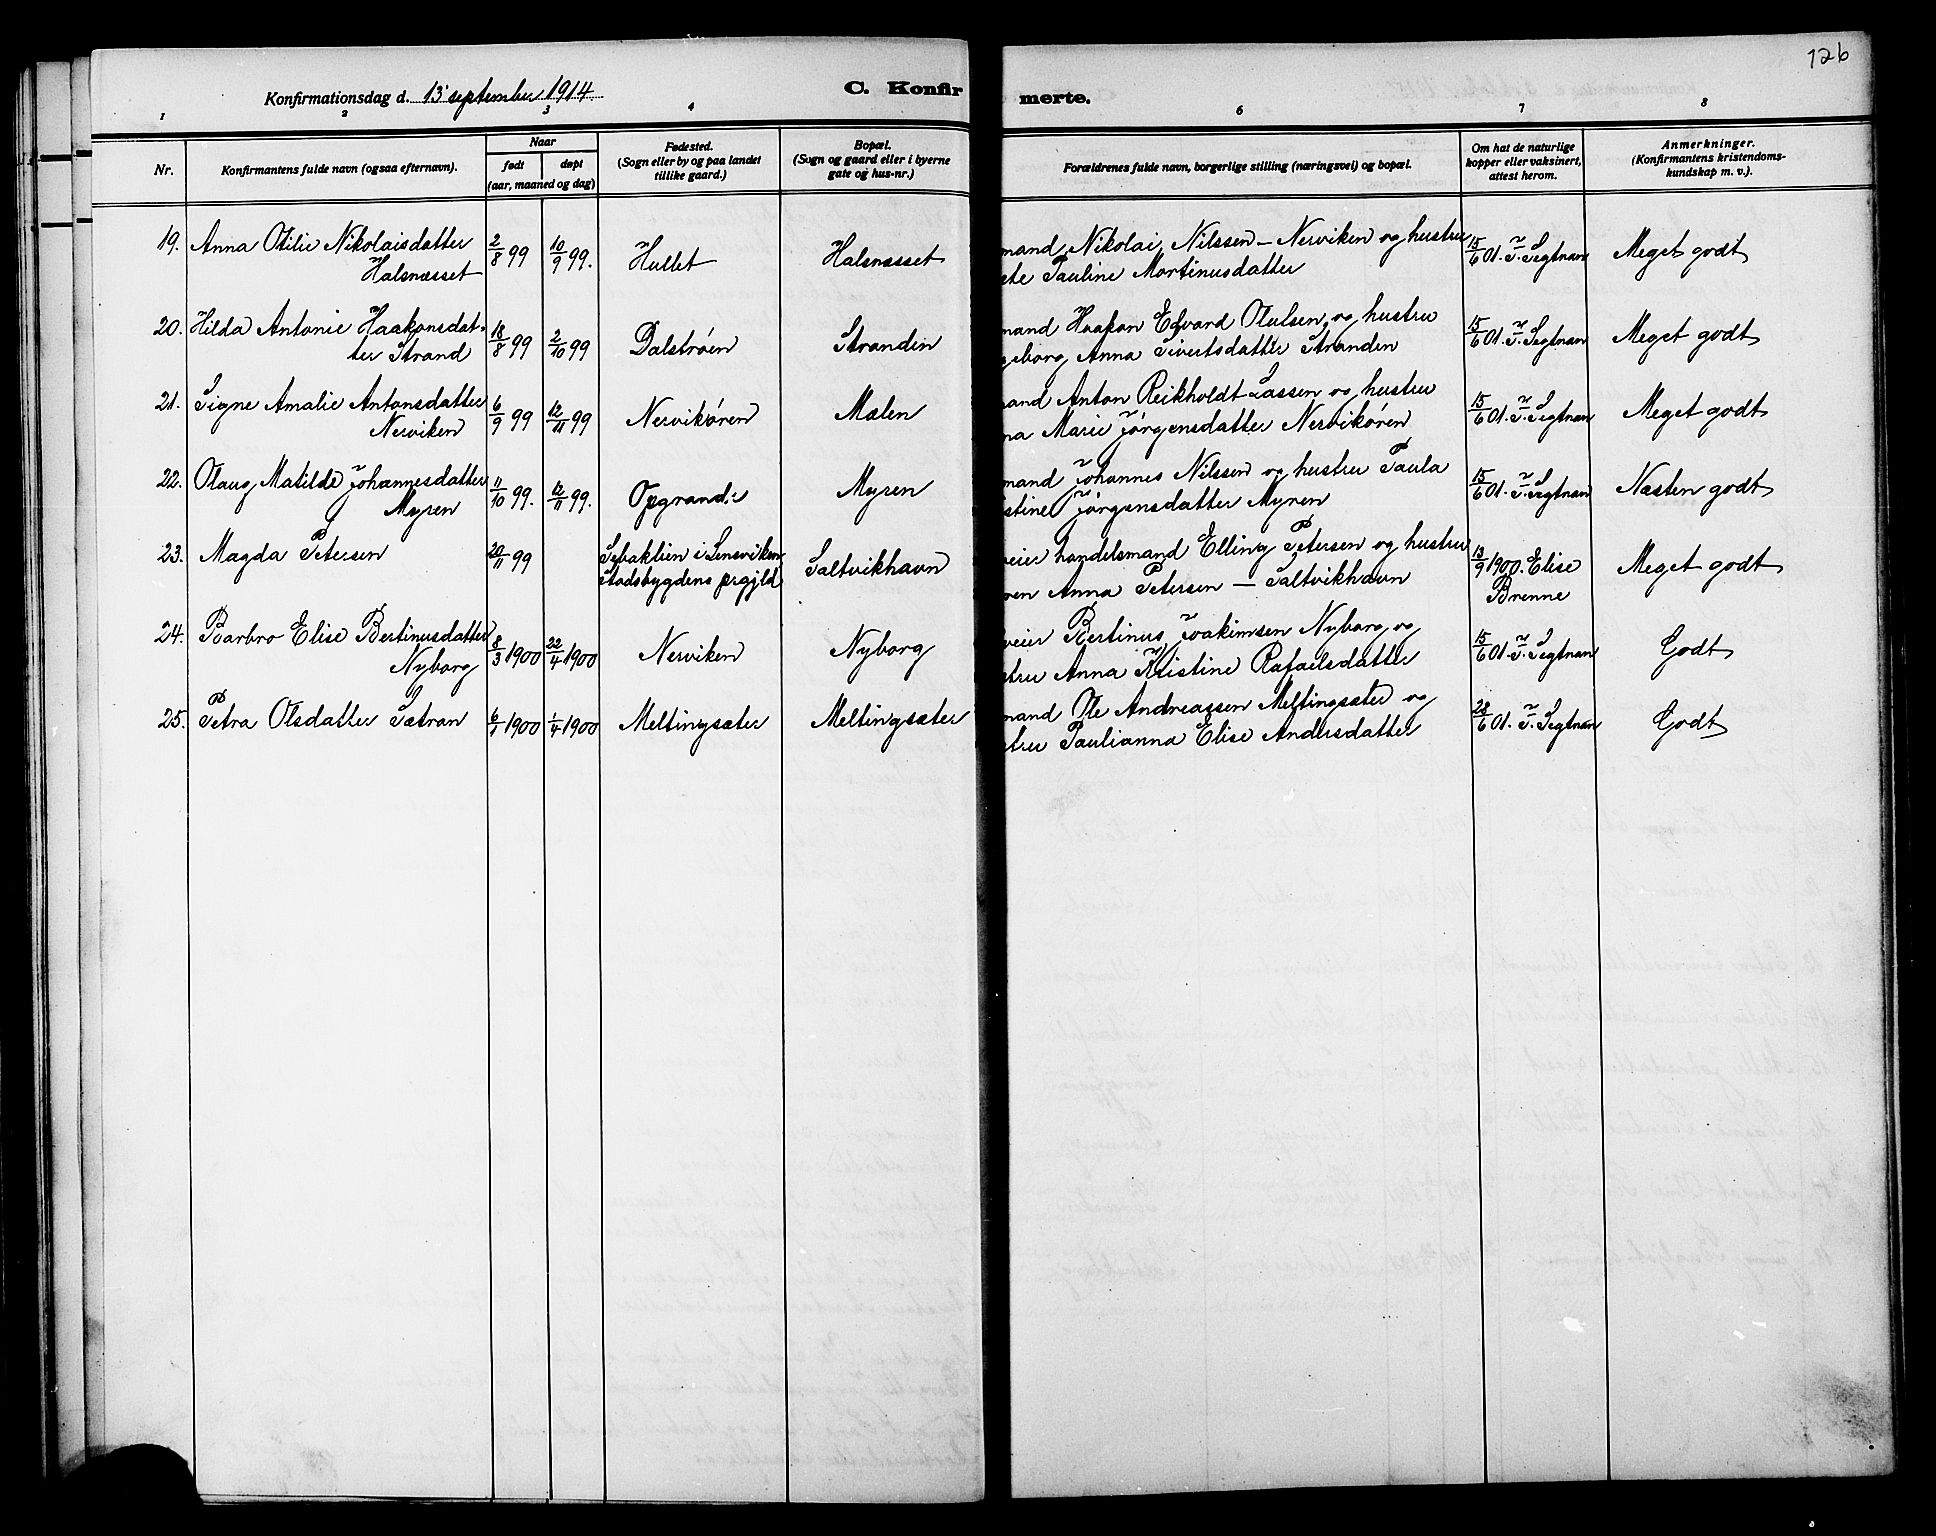 126
Konfirmationsdag d. 13 september 1914
C. Konfir
merte.
1 2 3 4 6 7 8
Nr.
Konfirmantens fulde navn (ogsaa efternavn).
Naar
født døpt
(aar, maaned og dag)
Fødested.
(Sogn eller by og paa landet
tillike gaard.)
Bopæl.
(Sogn og gaard eller i byerne
gate og hus-nr.)
Forældrenes fulde navn, borgerlige stilling (næringsvei) og bopæl.
Om hat de naturlige
kopper eller vaksinert,
attest herom.
Anmerkninger.
(Konfirmantens kristendoms-
kundskap m. v.).
19. Anna Otilie Nikolaisdatter 2/8 99 10/9 99. Hullet Halsnæsset mand Nikolai Nilssen – Nerviken og hustru 15/6 01. J. Segtnan Meget godt
Halsnæsset
Pauline Martinusdatter
20. Hilda Antonie Haakonsdat- 18/8 99 2/10 99 Dalstrøen Stranden mand Haakon Edvard Olulsen og hustru 15/6 01. J. Segtnan Meget godt
ter Strand
geborg Anna Sivertsdatter Stranden
21. Signe Amalie Antonsdatter 6/9 99 12/11 99 Nervikøren Mælen mand Anton Reikholdt Lassen og hustru 15/6 01. J. Segtnan Meget godt
Nerviken
na Marie Jørgensdatter Nervikøren
22. Olaug Matilde Johannesdatter 11/10 99. 12/11 99. Opgrand: Myren mand Johannes Nilssen og hustru Paula 15/6 01. J. Segtnan Næsten godt
Myren
stine Jørgensdatter Myren
23. Magda Petersen 20/11 99 i Lensviken Saltvikhavn eier handelsmand Elling Petersen og hustru 13/9 1900. Elise Meget godt
Stadsbygdens prgjld
en Anna Petersen – Saltvikhavn
Brenne
24. Barbro Elise Bertinusdatter 8/3 1900 22/4 1900 Nerviken Nyborg eier Bertinus Joakimsen Nyborg og 15/6 01. J. Segtnan Godt
Nyborg
tru Anna Kristine Rafaelsdatter
25. Petra Olsdatter Sætran 6/1 1900 1/4 1900 Meltingsæter Meltingsæter mand Ole Andreassen Meltingsæter og 28/6 01. J. Segtnan Godt
tru Paulianna Elise Andersdatter